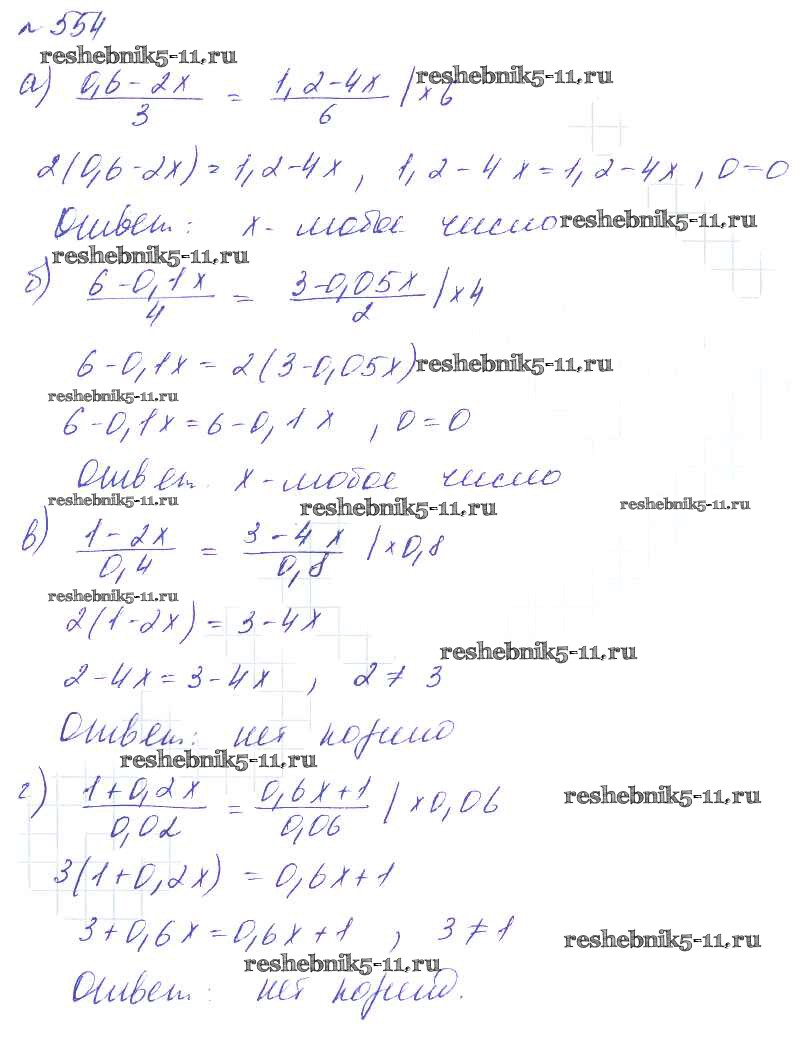 № 554
reshebnik5-11.ru
а) (0,6-2x)/3 = (1,2-4x)/6 |×6 reshebnik5-11.ru
2(0,6-2x)=1,2-4x, 1,2-4x=1,2-4x, 0=0
Ответ: x-любое число reshebnik5-11.ru
reshebnik5-11.ru
б) (6-0,1x)/4 = (3-0,05x)/2 |×4
6-0,1x=2(3-0,05x) reshebnik5-11.ru
reshebnik5-11.ru
6-0,1x=6-0,1x, 0=0
Ответ. x-любое число
reshebnik5-11.ru reshebnik5-11.ru reshebnik5-11.ru
в) (1-2x)/0,4 = (3-4x)/0,8 |×0,8
reshebnik5-11.ru
2(1-2x)=3-4x
reshebnik5-11.ru
2-4x=3-4x, 2≠3
Ответ: нет корней
reshebnik5-11.ru
г) (1+0,2x)/0,02 = (0,6x+1)/0,06 |×0,06 reshebnik5-11.ru
3(1+0,2x)=0,6x+1
3+0,6x=0,6x+1, 3≠1 reshebnik5-11.ru
reshebnik5-11.ru
Ответ: нет корней.